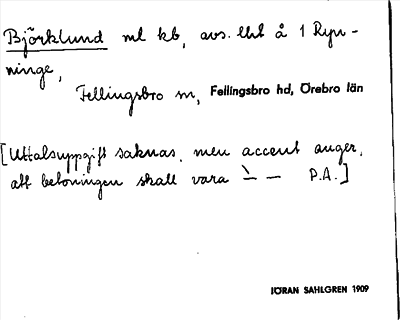 Björklund ml kb, avs. lht å 1 Ryn-
ninge,
Fellingsbro sn, Fellingsbro hd, Örebro län
[Uttalsuppgift saknas, men accent anger,
att betoningen skall vara `— — P.A.]
JÖRAN SAHLGREN 1909